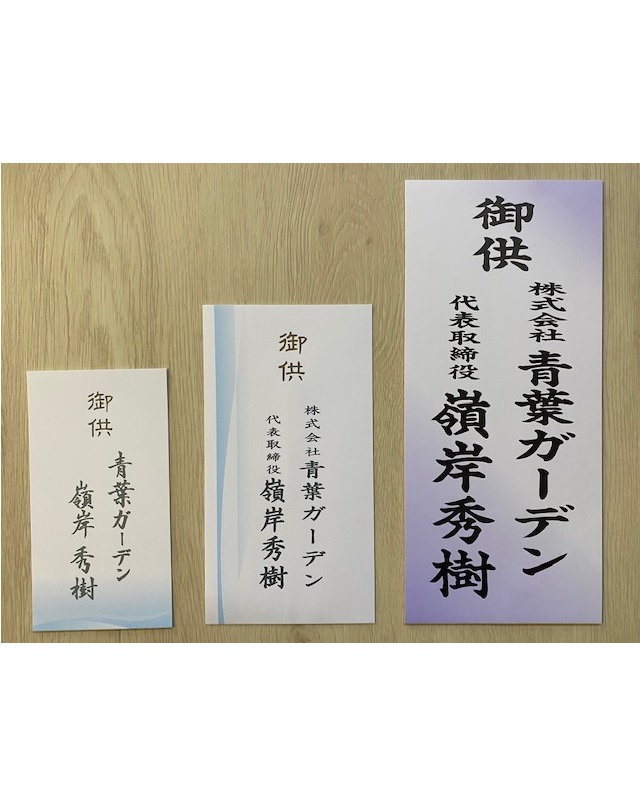 御供
青葉ガーデン
嶺岸秀樹
御供
株式会社青葉ガーデン
代表取締役嶺岸秀樹
御供
株式会社青葉ガーデン
代表取締役嶺岸秀樹